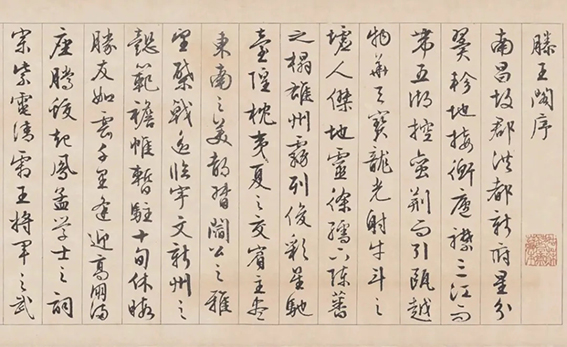 滕王閣序
南昌故郡洪都新府星分
翼軫地接衡廬襟三江而
帶五湖控蛮荆而引甌越
物華天寶龍光射牛斗之
墟人傑地靈徐孺下陳蕃
之榻雄州霧列俊彩星馳
臺隍枕夷夏之交賓主盡
東南之美都督閻公之雅
望棨戟遥臨宇文新州之
懿範襜帷暫駐十旬休暇
勝友如雲千里逢迎高朋滿
座騰蛟起鳳孟学士之詞
宗紫電清霜王將軍之武